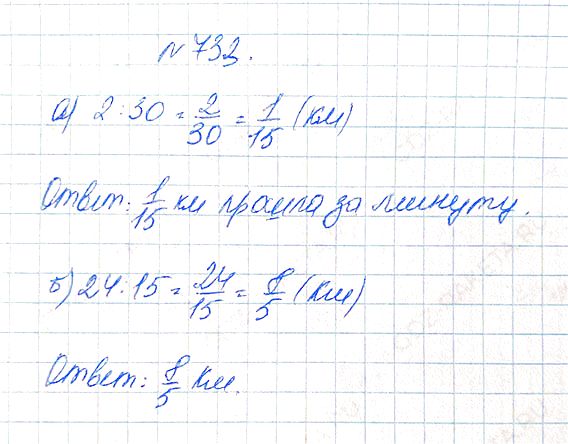 № 733.
а) 2:30 = 2/30 = 1/15 (км)
Ответ: 1/15 км прошла за минуту.
б) 24:15 = 24/15 = 8/5 (км)
Ответ: 8/5 км.